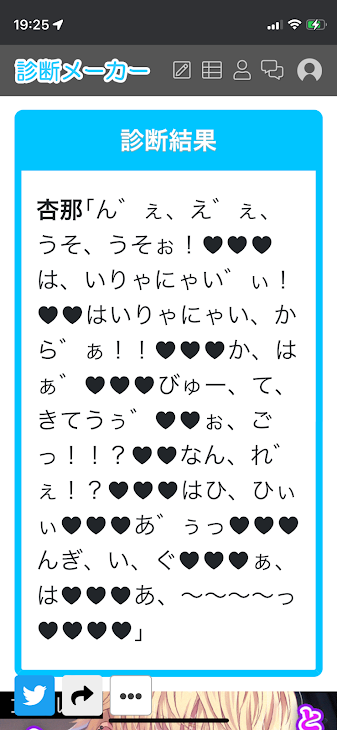 19:25
診断メーカー
診断結果
杏那「ん゛ぇ、え゛ぇ、
うそ、うそぉ！♥♥♥
は、いりゃにゃい゛ぃ！
♥♥はいりゃにゃい、か
ら゛ぁ！！♥♥♥か、は
ぁ゛♥♥♥びゅー、て、
きてうぅ゛♥♥ぉ、ご
っ！！？♥♥なん、れ゛
ぇ！？♥♥♥はひ、ひぃ
ぃ♥♥♥あ゛ぅっ♥♥♥
んぎ、い、ぐ♥♥♥ぁ、
は♥♥♥あ、〜〜〜〜っ
♥♥♥♥」